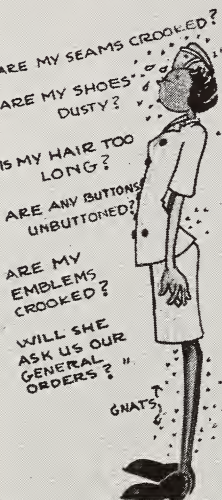 ARE MY SEAMS CROOKED?
ARE MY SHOES
DUSTY?
IS MY HAIR TOO
LONG?
ARE ANY BUTTONS
UNBUTTONED?
ARE MY
EMBLEMS
CROOKED?
WILL SHE
ASK US OUR
GENERAL
ORDERS?"
GNATS